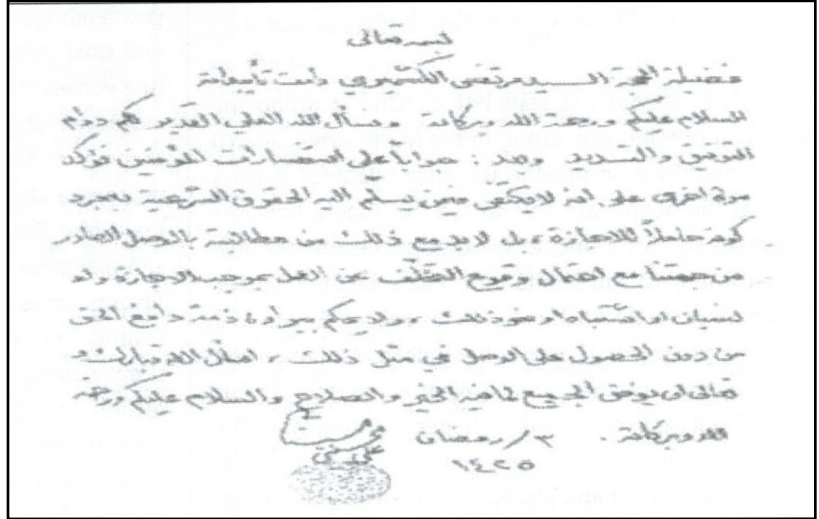 بسمه تعالى
فضيلة الحجة السيد مرتضى الكشميري دامت تأييداته
السلام عليكم ورحمة الله وبركاته ونسأل الله العلي القدير لكم دوام
التوفيق والتسديد وبعد : جواباً على استفسارات المؤمنين نؤكد
مرة اخرى على انه لا يكتفى ممن يسلّم اليه الحقوق الشرعية بمجرد
كونه حاملاً للاجازة، بل لابد مع ذلك من مطالبته بالوصل الصادر
من جهتنا مع احتمال وقوع التخلّف عن العمل بموجب الاجازة ولو
لنسيان او اشتباه او نحو ذلك، ولا يحكم ببراءة ذمة دافع الحق
من دون الحصول على الوصل في مثل ذلك، اسأل الله تبارك و
تعالى ان يوفق الجميع لما فيه الخير والصلاح والسلام عليكم ورحمة
الله وبركاته . ٣/رمضان
١٤٢٥